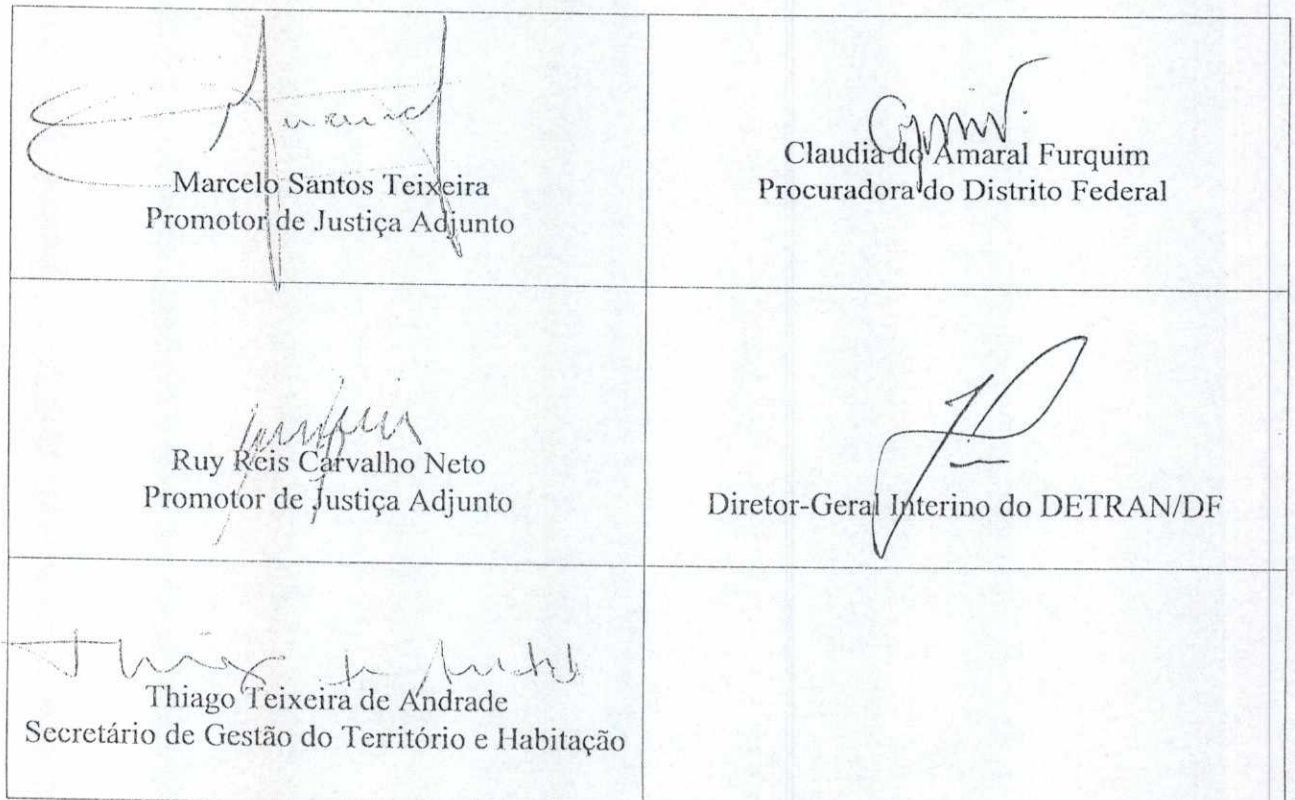 Marcelo Santos Teixeira
Promotor de Justiça Adjunto
Claudia do Amaral Furquim
Procuradora do Distrito Federal
Ruy Reis Carvalho Neto
Promotor de Justiça Adjunto
Diretor-Geral Interino do DETRAN/DF
Thiago Teixeira de Andrade
Secretário de Gestão do Território e Habitação